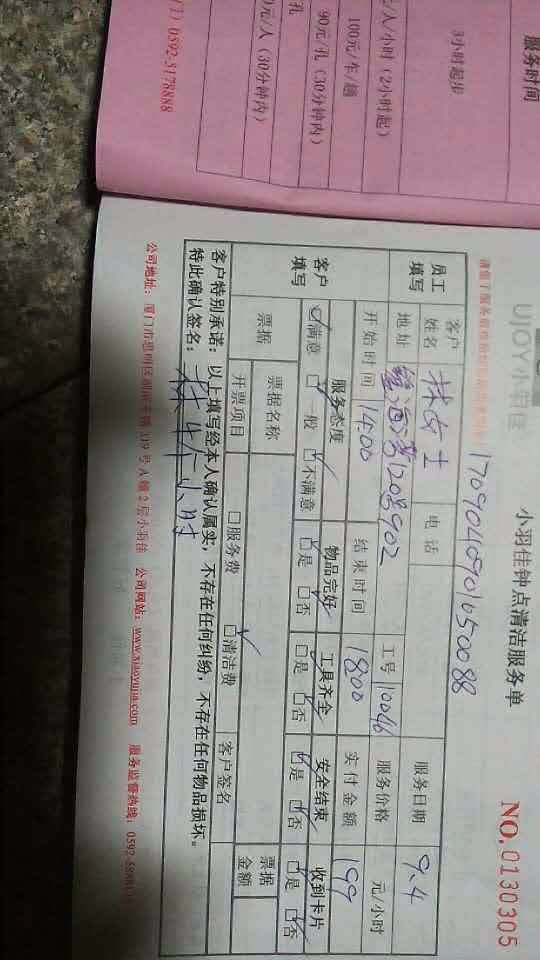 服务时间
3小时起步
元/人/小时（2小时起）
100元/车/趟
90元/孔（30分钟内）
孔
0元/人（30分钟内）
0592-5178888
UJOY小羽佳
小羽佳钟点清洁服务单
NO.0130305
1709040901050088
员工填写
客户姓名 林女士 电话 服务日期 9.4
地址 1208902 工号 10046 服务价格 元/小时
客户填写
开始时间 14:00 结束时间 1800 实付金额 199
服务态度 物品完好 工具齐全 安全结束 收到卡片
☑满意 □一般 □不满意 □是 □否 □是 □否 □是 □否 □是 □否
票据 票据名称 客户签名 票据金额
开票项目 □服务费 □清洁费
客户特别承诺：以上填写经本人确认属实，不存在任何纠纷，不存在任何物品损坏。
特此确认签名：
公司地址：厦门市思明区湖滨东路319号A幢2层小羽佳 公司网站：www.xiaoyujia.com 服务监督热线：0592-5888110